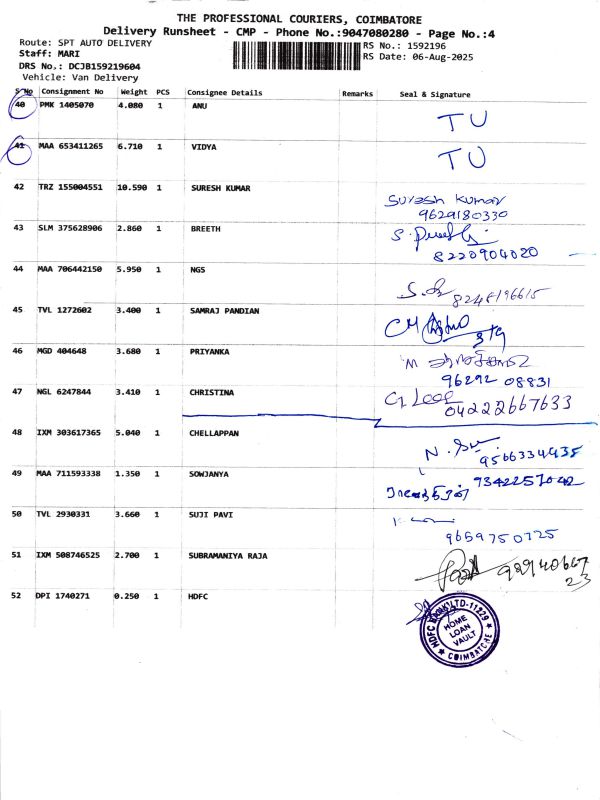 THE PROFESSIONAL COURIERS, COIMBATORE
Delivery Runsheet - CMP - Phone No.:9047080280 - Page No.:4
Route: SPT AUTO DELIVERY
RS No.: 1592196
Staff: MARI
RS Date: 06-Aug-2025
DRS No.: DCJB159219604
Vehicle: Van Delivery
S No Consignment No Weight PCS Consignee Details Remarks Seal & Signature
40 PMK 1405070 4.080 1 ANU TU
41 MAA 653411265 6.710 1 VIDYA TU
42 TRZ 155004551 10.590 1 SURESH KUMAR Suresh Kumar
9629180330
43 SLM 375628906 2.860 1 BREETH
8220904020
44 MAA 706442150 5.950 1 NGS
45 TVL 1272602 3.400 1 SAMRAJ PANDIAN
46 MGD 404648 3.680 1 PRIYANKA
96292 08831
47 NGL 6247844 3.410 1 CHRISTINA
04222667633
48 IXM 303617365 5.040 1 CHELLAPPAN
9566334435
49 MAA 711593338 1.350 1 SOWJANYA
50 TVL 2930331 3.660 1 SUJI PAVI
9659750725
51 IXM 508746525 2.700 1 SUBRAMANIYA RAJA
52 DPI 1740271 0.250 1 HDFC
HDFC BANK LTD-11229
HOME
LOAN
VAULT